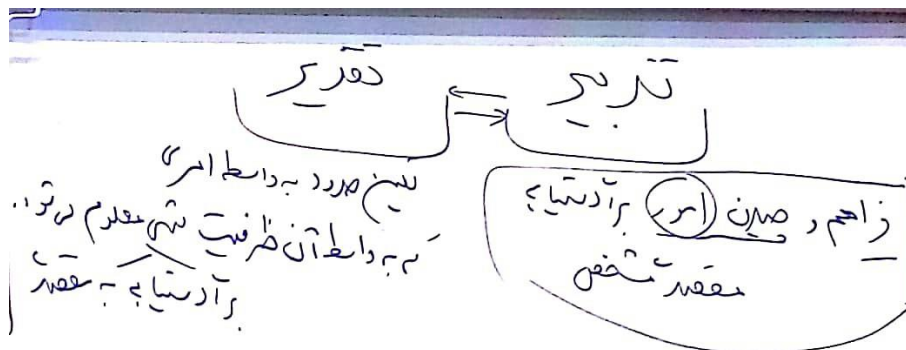 تدبیر
تقدیر
فراهم و چیدن امور برا دستیابی
مقصد مشخص
تعیین حدود به واسطه امری
که به واسطه آن ظرفیت شی معلوم می‌شود
برا دستیابی به مقصد